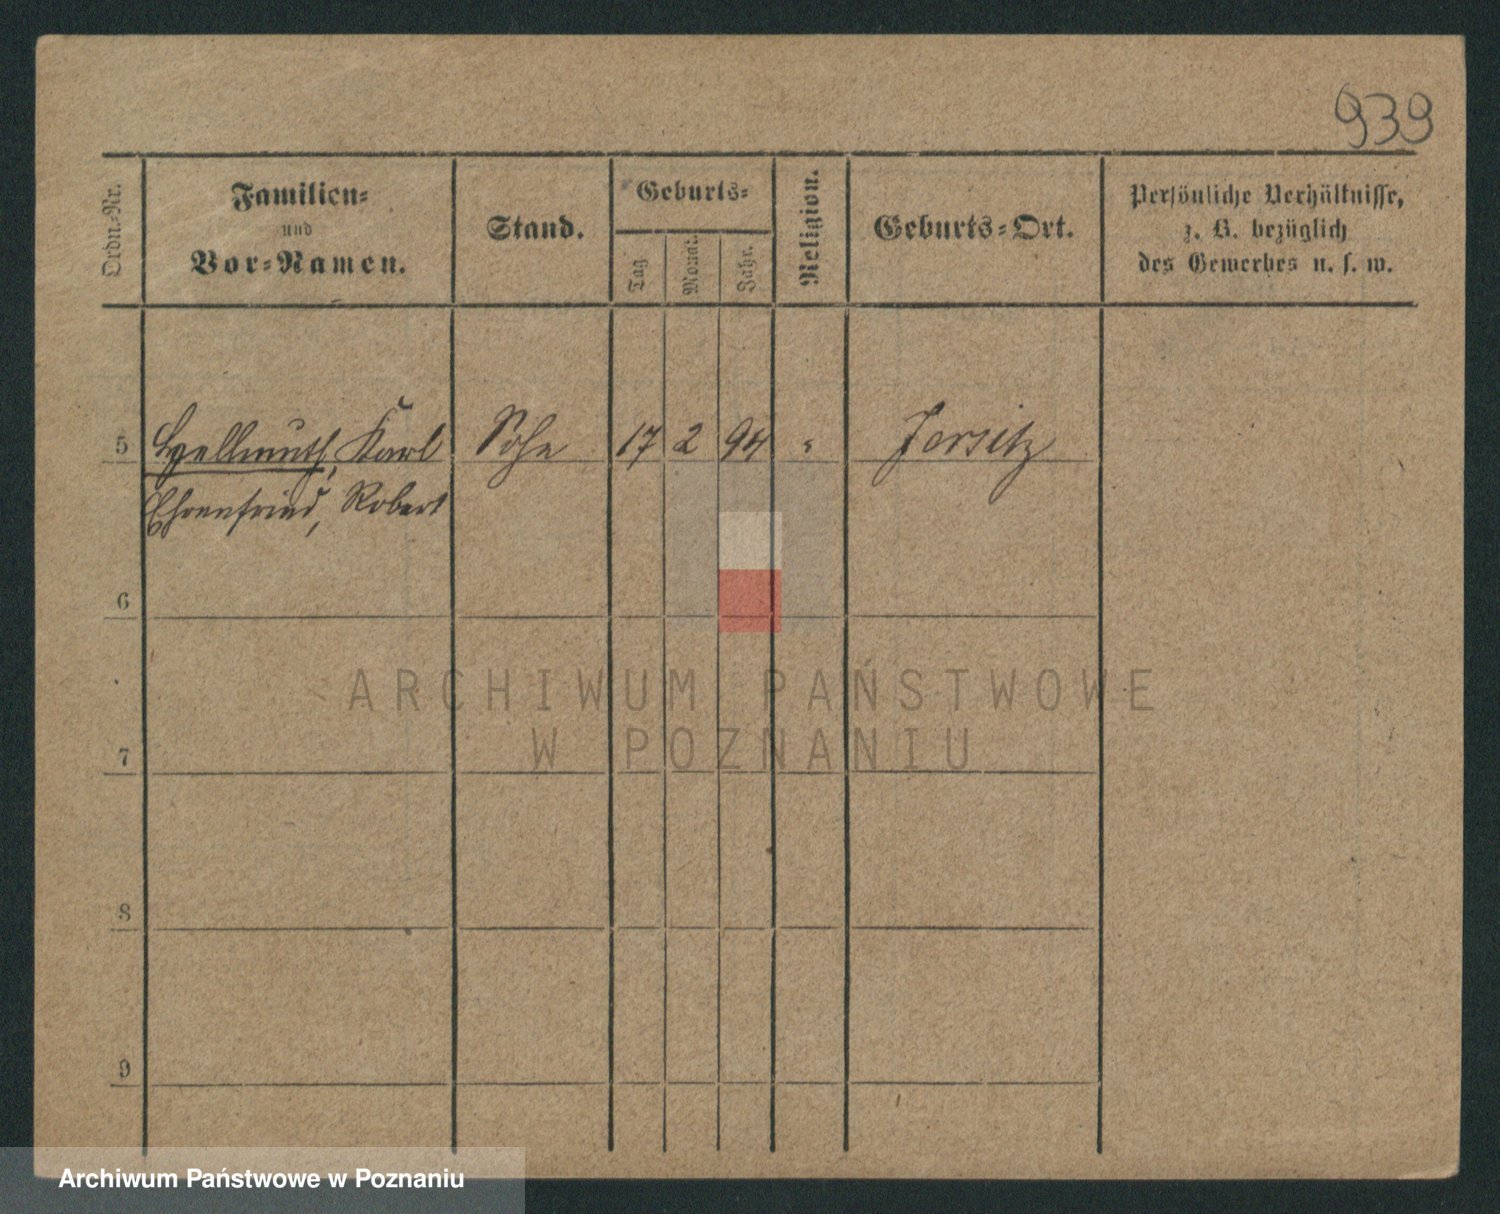 939
Ordn.-Nr.
Familien-
und
Vor-Namen.
Stand.
Geburts-
Tag
Monat.
Jahr.
Religion.
Geburts-Ort.
Persönliche Verhältnisse,
z. B. bezüglich
des Gewerbes u. s. w.
5 Hellmuth, Karl Sohn 17 2 94 " Jersitz
Ehrenfried, Robert
6
7
8
9
ARCHIWUM PAŃSTWOWE
W POZNANIU
Archiwum Państwowe w Poznaniu